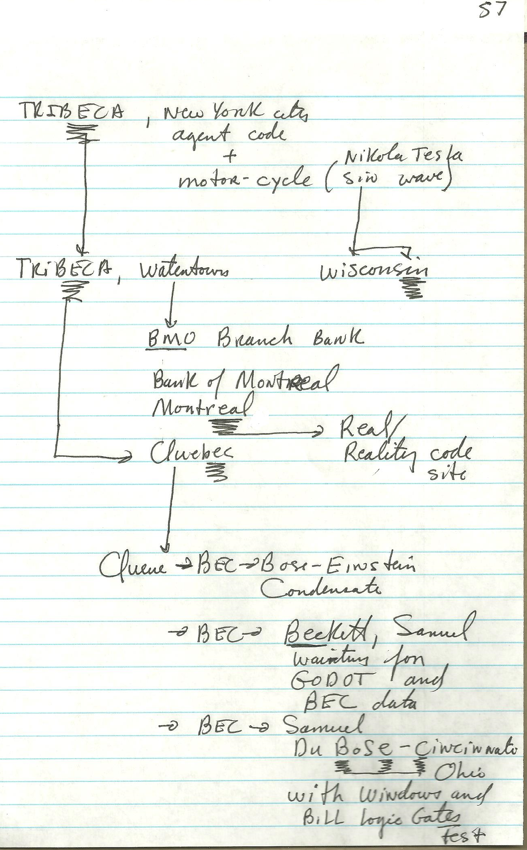 57
TRIBECA, New York city
agent code
+
motor-cycle (Nikola Tesla
sin wave)
TRIBECA, Watertown
Wisconsin
BMO Branch Bank
Bank of Montreal
Montreal
Real/
Reality code
site
Cluebec
Cluene → BEC → Bose-Einstein
Condensate
→ BEC → Beckett, Samuel
waiting for
GODOT and
BEC data
→ BEC → Samuel
Du Bose - Cincinnati
Ohio
with Windows and
Bill Logic Gates
test